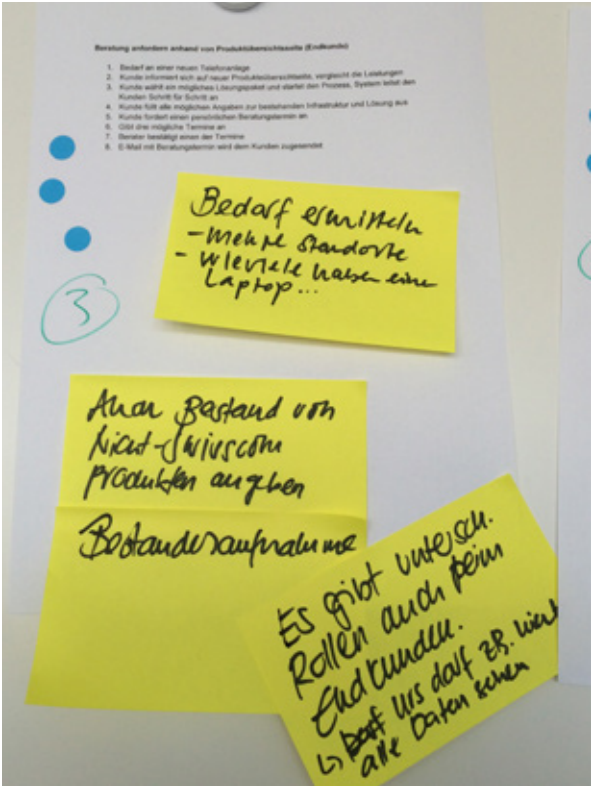 Beratung anfordern anhand von Produktübersichtsseite (Endkunde)
1. Bedarf an einer neuen Telefonanlage
2. Kunde informiert sich auf neuer Produkteübersichtseite, vergleicht die Leistungen
3. Kunde wählt ein mögliches Lösungspaket und startet den Prozess, System leitet den
Kunden Schritt für Schritt an
4. Kunde füllt alle möglichen Angaben zur bestehenden Infrastruktur und Lösung aus
5. Kunde fordert einen persönlichen Beratungstermin an
6. Gibt drei mögliche Termine an
7. Berater bestätigt einen der Termine
8. E-Mail mit Beratungstermin wird dem Kunden zugesendet
Bedarf ermitteln
- mehre Standorte
- wieviele haben einen
Laptop...
3
Auch Bestand von
Nicht-Swisscom
Produkten angeben
Bestandesaufnahme
Es gibt untersch.
Rollen auch beim
Endkunden.
↳ Urs darf z.B. nicht
alle Daten sehen